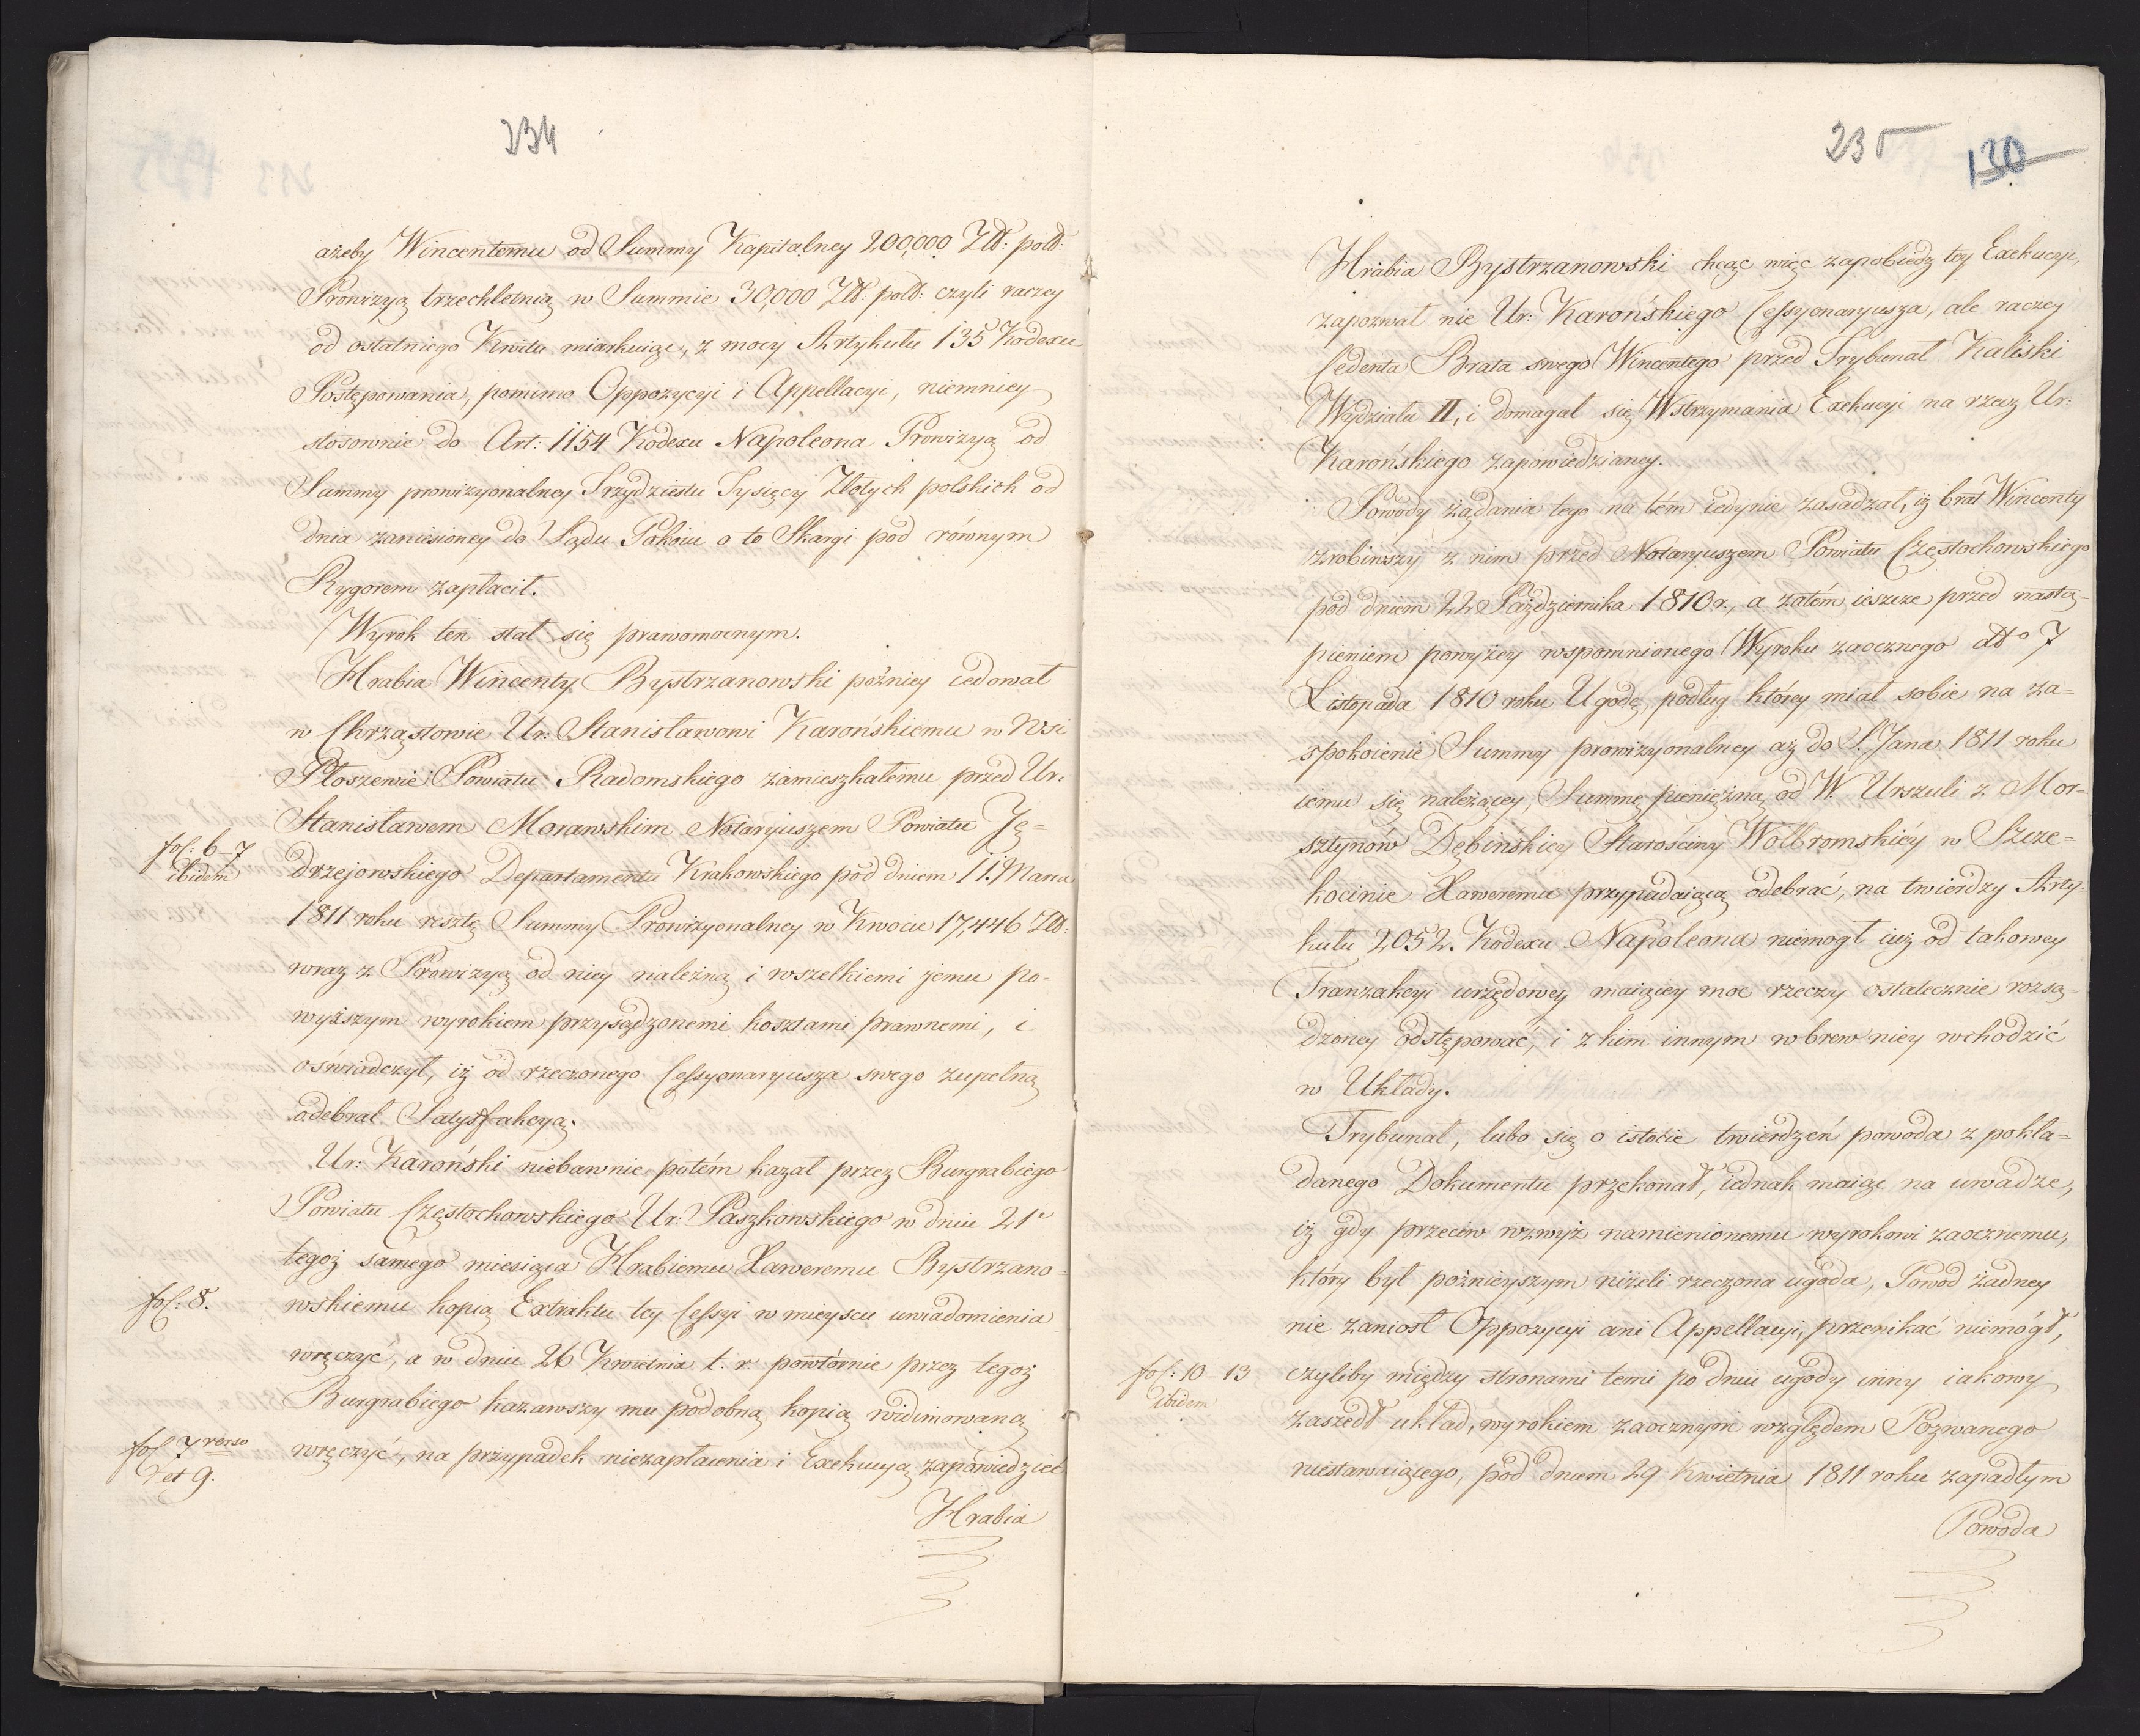 234
ażeby Wincentemu od Summy Kapitalney 200,000 Zlt: pold:
Prowizyą trzechletnią w Summie 30,000 Zlt: pold: czyli raczey
od ostatniego Kwitu miarkuiąc, z mocy Artykułu 135 Kodexu
Postępowania, pomimo Oppozycyi i Appellacyi, niemniey
stosownie do Art: 1154 Kodexu Napoleona Prowizyą od
Summy prowizyonalney Trzydziestu Tysięcy Złotych polskich od
dnia zaniesioney do Sądu Pokoiu o to Skargi pod równym
Rygorem zapłacił.
Wyrok ten stał się prawomocnym.
Hrabia Wincenty Bystrzanowski poźniey cedował
w Chrząstowie Ur: Stanisławowi Karońskiemu w Wsi
Płoszewie Powiatu Radomskiego zamieszkałemu przed Ur:
Stanisławem Morawskim Notaryuszem Powiatu Ję=
fol: 6-7
ibidem
drzejowskiego Departamentu Krakowskiego pod dniem 11. Marca
1811 roku resztę Summy Prowizyonalney w Kwocie 17,446 Zlt:
wraz z Prowizyą od niey należną i wszelkiemi jemu po-
wyższym wyrokiem przysądzonemi kosztami prawnemi, i
oświadczył, iż od rzeczonego Cessyonaryusza swego zupełną
odebrał Satysfakcyą.
Ur: Karoński niebawnie potém kazał przez Burgrabiego
Powiatu Częstochowskiego Ur: Paszkowskiego w dniu 21º
tegoż samego miesiąca Hrabiemu Xaweremu Bystrzano-
fol: 8.
wskiemu kopią Extraktu tey Cessyi w mieyscu uwiadomienia
wręczyć, a w dniu 26 Kwietnia t. r. powtórnie przez tegoż
Burgrabiego kazawszy mu podobną kopią widimowaną
fol 7 verso
et 9.
wręczyć, na przypadek niezapłacenia i Exekucyą zapowiedzieć
Hrabia
235
130
Hrabia Bystrzanowski chcąc więc zapobiedz tey Exekucyi,
zapozwał nie Ur: Karońskiego Cessyonaryusza, ale raczey
Cedenta Brata swego Wincentego przed Trybunał Kaliski
Wydziału II, i domagał się Wstrzymania Exekucyi na rzecz Ur:
Karońskiego zapowiedzianey.
Powody żądania tego na tém iedynie zasadzał, iż brat Wincenty
zrobiwszy z nim przed Notaryuszem Powiatu Częstochowskiego
pod dniem 22 Października 1810 r., a zatém ieszcze przed nastą-
pieniem powyżey wspomnionego Wyroku zaocznego dtto 7
Listopada 1810 roku Ugodę, podług którey miał sobie na za=
spokoienie Summy prowizyonalney aż do S. Jana 1811 roku
iemu się należącey, Summę pieniężną od W. Urszuli z Mor=
sztynów Dębińskiey Starościny Wolbromskiéy w Szcze=
kocinie Xaweremu przypadaiącą odebrać, na twierdzy Arty-
kułu 2052. Kodexu Napoleona niemógł iuż od takowey
Tranzakcyi urzędowey maiącey moc rzeczy ostatecznie rozsą=
dzoney odstępować, i z kim innym wbrew niey wchodzić
w Układy.
Trybunał, lubo się o istocie twierdzeń powoda z pokła=
danego Dokumentu przekonał, iednak maiąc na uwadze,
iż gdy przeciw wzwyż namienionemu wyrokowi zaocznemu,
który był poźnieyszym niżeli rzeczona ugoda, Powód żadney
nie zaniosł Oppozycyi ani Appellacyi, przenikać niemógł,
fol: 10-13
ibidem
czyliby między stronami temi po dniu ugody inny iakowy
zaszedł układ, wyrokiem zaocznym względem Pozwanego
niestawaiącego, pod dniem 29 Kwietnia 1811 roku zapadłym
Powoda